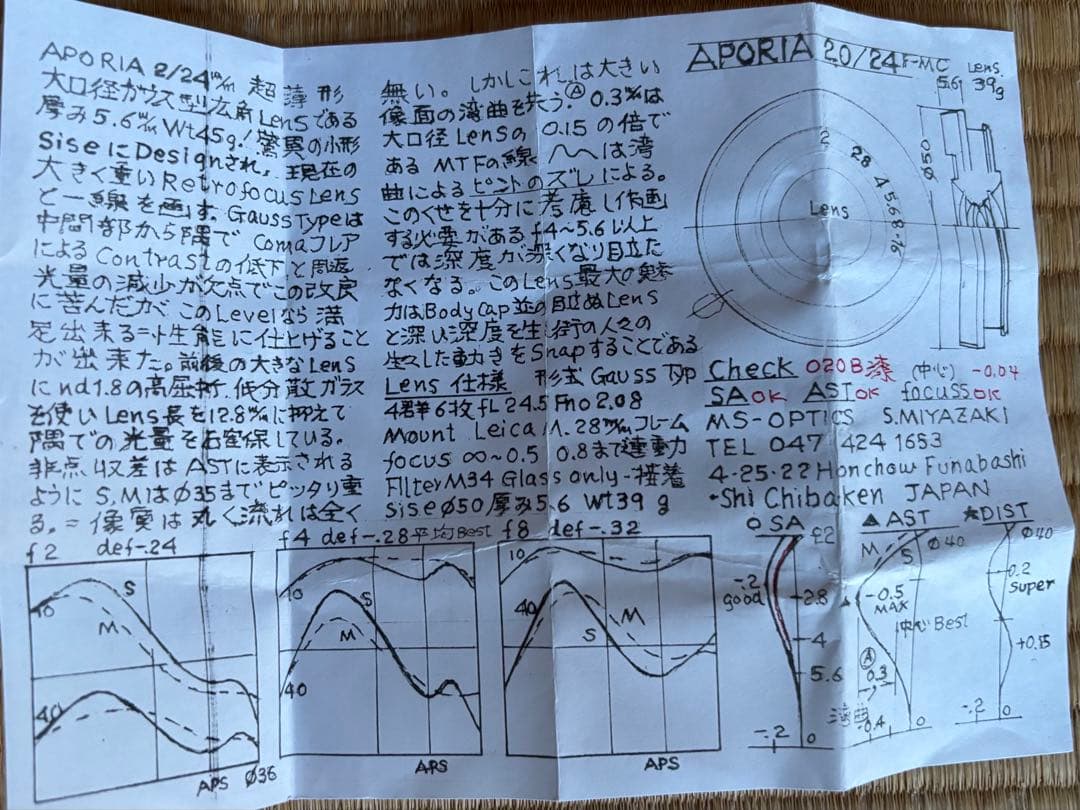 APORIA 2/24m/m 超薄形
大口径ガウス型広角Lensである
厚み5.6m/m Wt45g! 驚異の小形
SiseにDesignされ、現在の
大きく重いRetrofocus Lens
と一線を画す。Gauss Typeは
中間部から隅でComaフレア
によるContrastの低下と周辺
光量の減少が欠点でこの改良
に苦んだが、このLevelなら満
足出来る=性能に仕上げること
が出来た。前後の大きなLens
にnd1.8の高屈折、低分散ガラス
を使いLens長を12.8m/mに抑えて
隅での光量を確保している。
非点収差はASTに表示される
ようにS.MはØ35までピッタリ重
る。=像質は丸く流れは全く
無い。しかしこれは大きい
像面の湾曲を伴う。Ⓐ 0.3m/mは
大口径Lensの 0.15の倍で
ある MTFの線 は湾
曲によるピントのズレによる。
このくせを十分に考慮し作画
する必要がある f4~5.6以上
では深度が深くなり目立た
なくなる。このLens最大の魅
力はBody Cap並の目立ぬLens
と深い深度を生し街の人々の
生々した動きをSnapすることである
Lens 仕様 形式 Gauss Typ
4群6枚 fL 24.5 Fno 2.08
Mount Leica M. 28m/mフレーム
focus ∞~0.5 0.8まで連動
Filter M34 Glass only-接着
sise Ø50 厚み5.6 Wt 39g
APORIA 2.0/24 F-MC
Lens.
5.6 39g
Ø50
2 28 4 5.6 8 16
Lens
Check 020B漆 (中心) -0.04
SA OK AST OK focuss OK
MS-OPTICS S.MIYAZAKI
TEL 047 424 1653
4-25-22 Honchow Funabashi
-Shi Chibaken JAPAN
f2 def-.24
10
S
M
40
APS Ø36
f4 def-.28 平均Best
10
S
M
40
APS
f8 def-.32
10
40
M
S
APS
○ SA
f2
-.2
good
2.8
4
5.6
-.2 0
▲ AST
M S Ø40
-0.5
MAX
中心Best
Ⓐ
0.3
湾曲
-0.4 0
★DIST
Ø40
0.2
super
+0.15
-.2 0